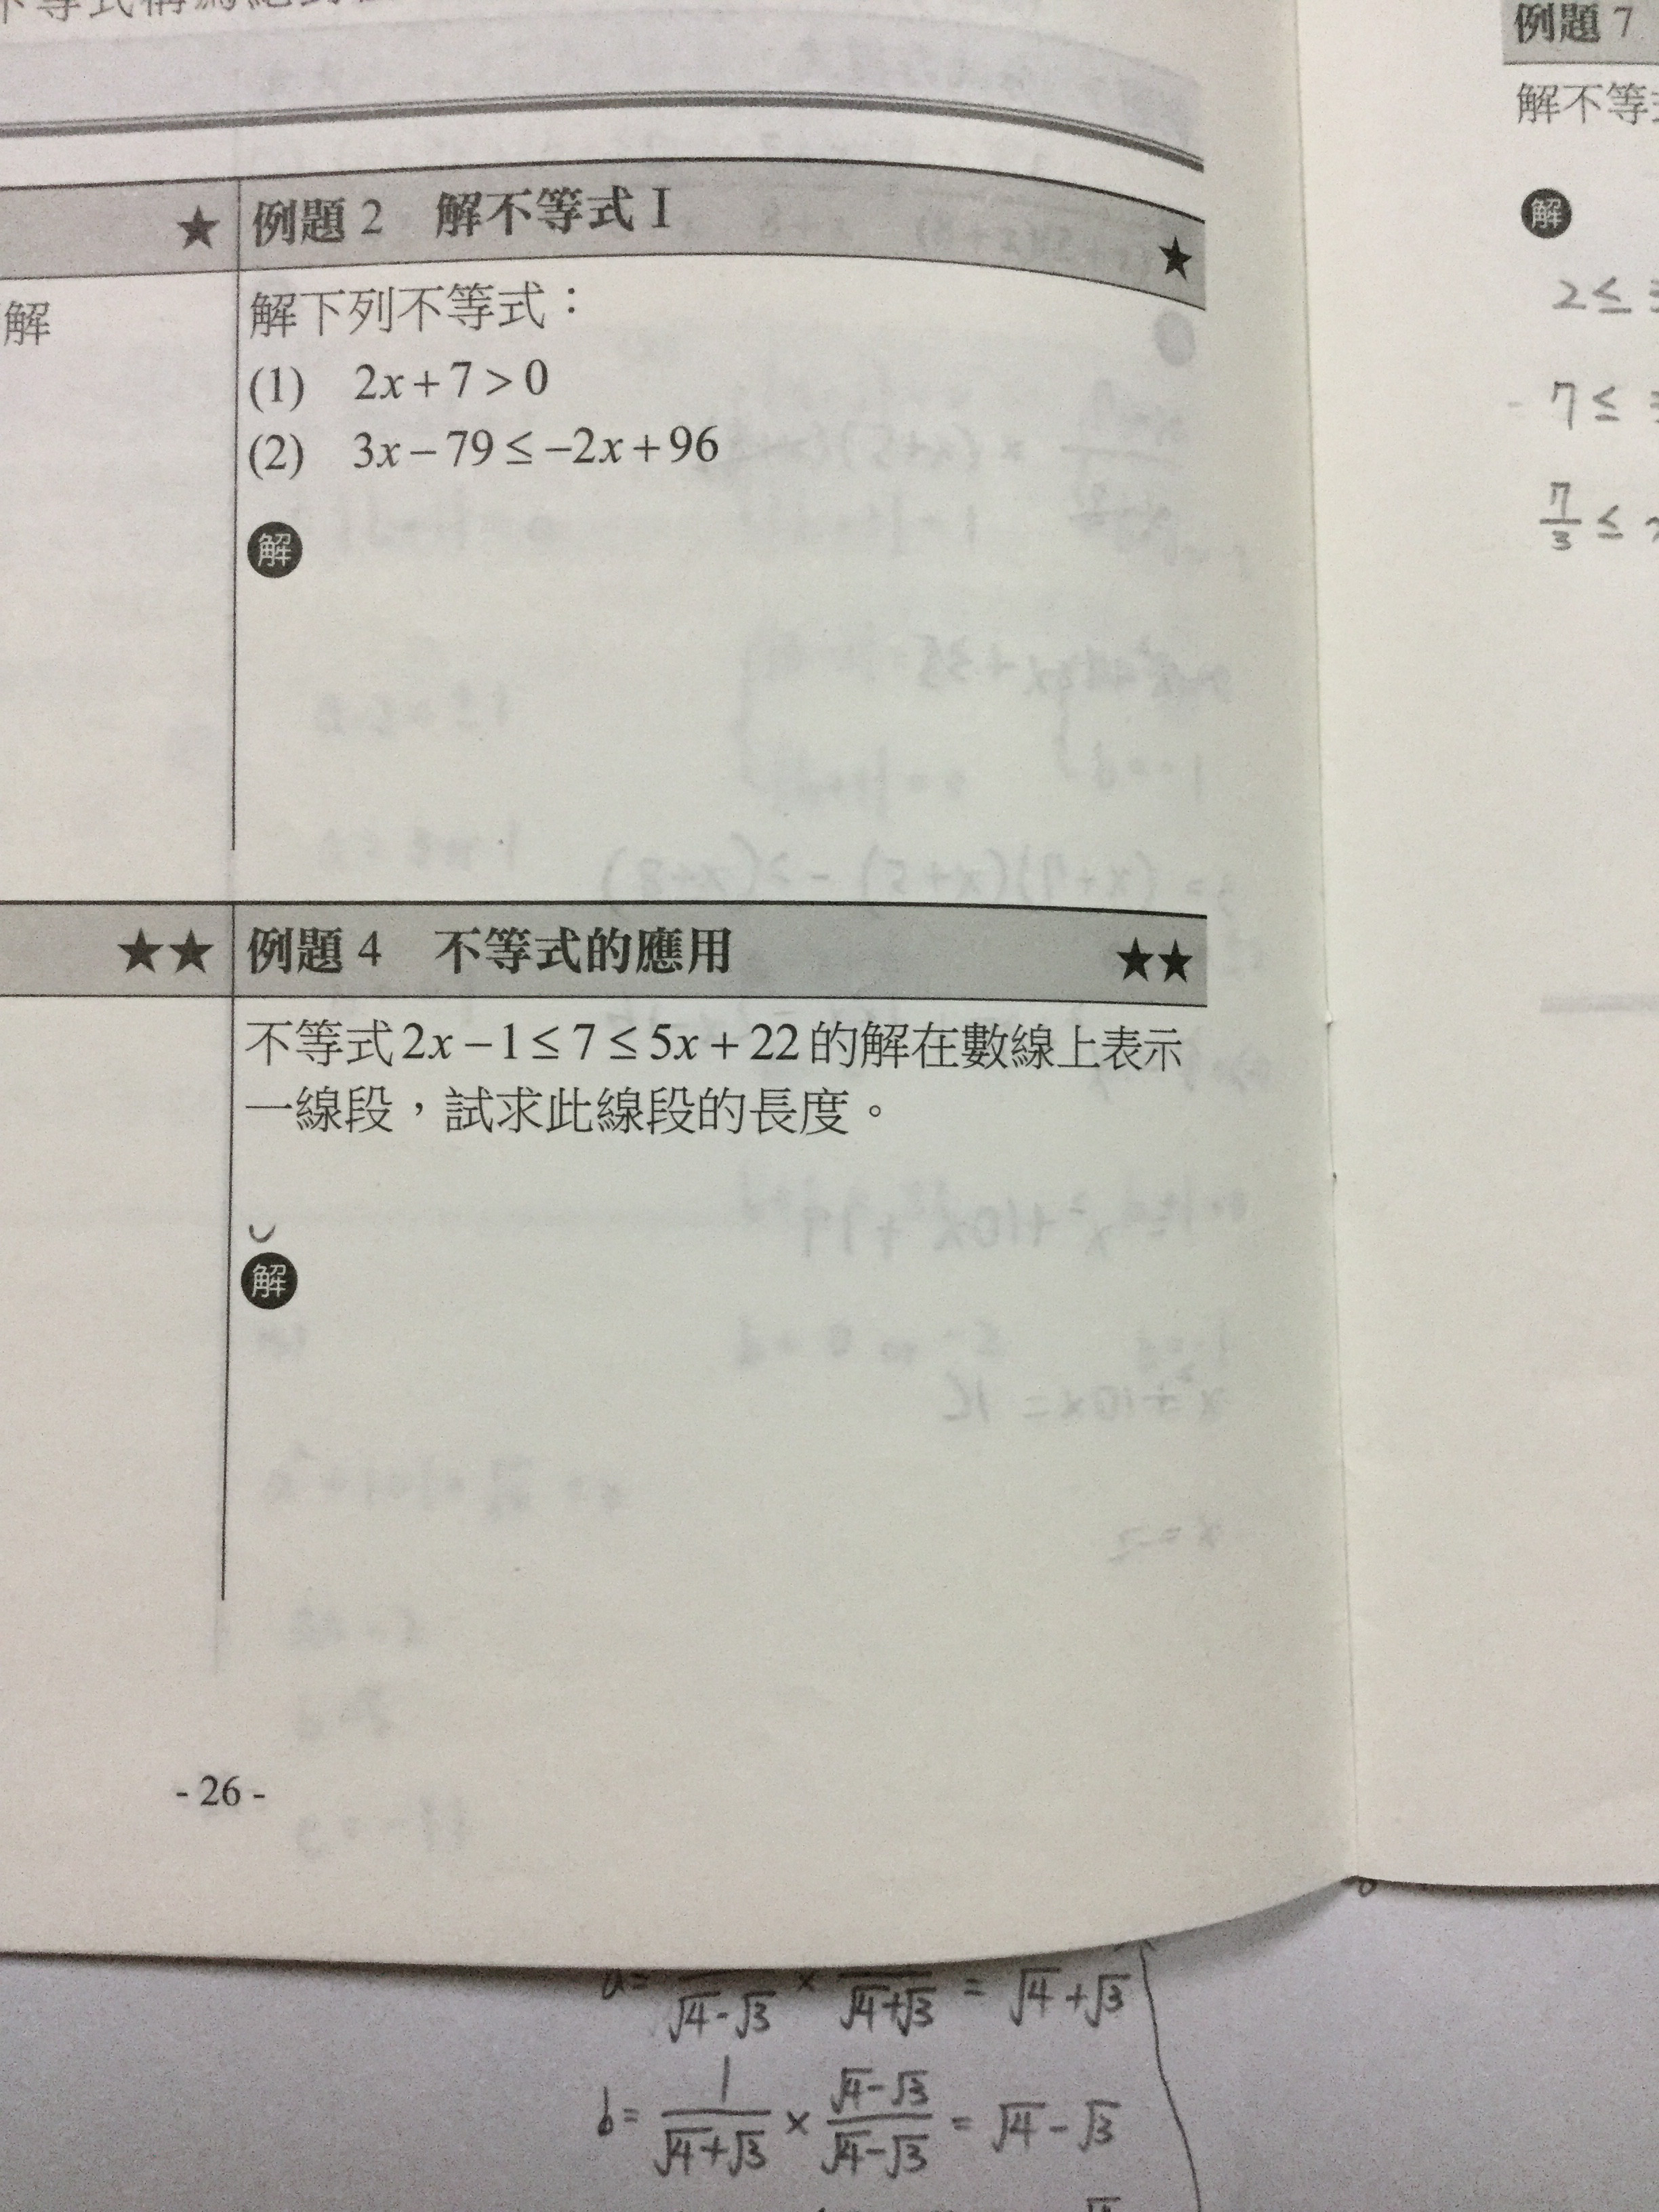 ★ 例題 2 解不等式 I ★
解
解下列不等式：
(1) 2x+7>0
(2) 3x−79≤−2x+96
解
★★ 例題 4 不等式的應用 ★★
不等式2x−1≤7≤5x+22的解在數線上表示
一線段，試求此線段的長度。
解
- 26 -
例題 7
解不等
解
2≤
7≤
7/3 ≤
√4-√3 × √4+√3 = √4+√3
b= 1/(√4+√3) × (√4-√3)/(√4-√3) = √4-√3